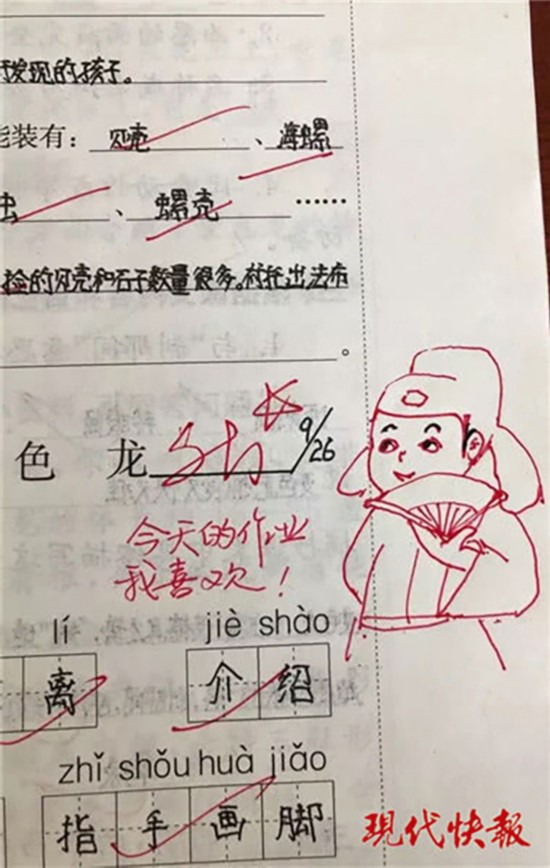 发现的孩子。
能装有：贝壳、海螺
虫、螺壳……
捡的贝壳和石子数量很多。衬托出法布
。
色 龙
9/26
今天的作业
我喜欢！
lí jiè shào
离 介绍
zhǐ shǒu huà jiǎo
指手画脚
现代快報